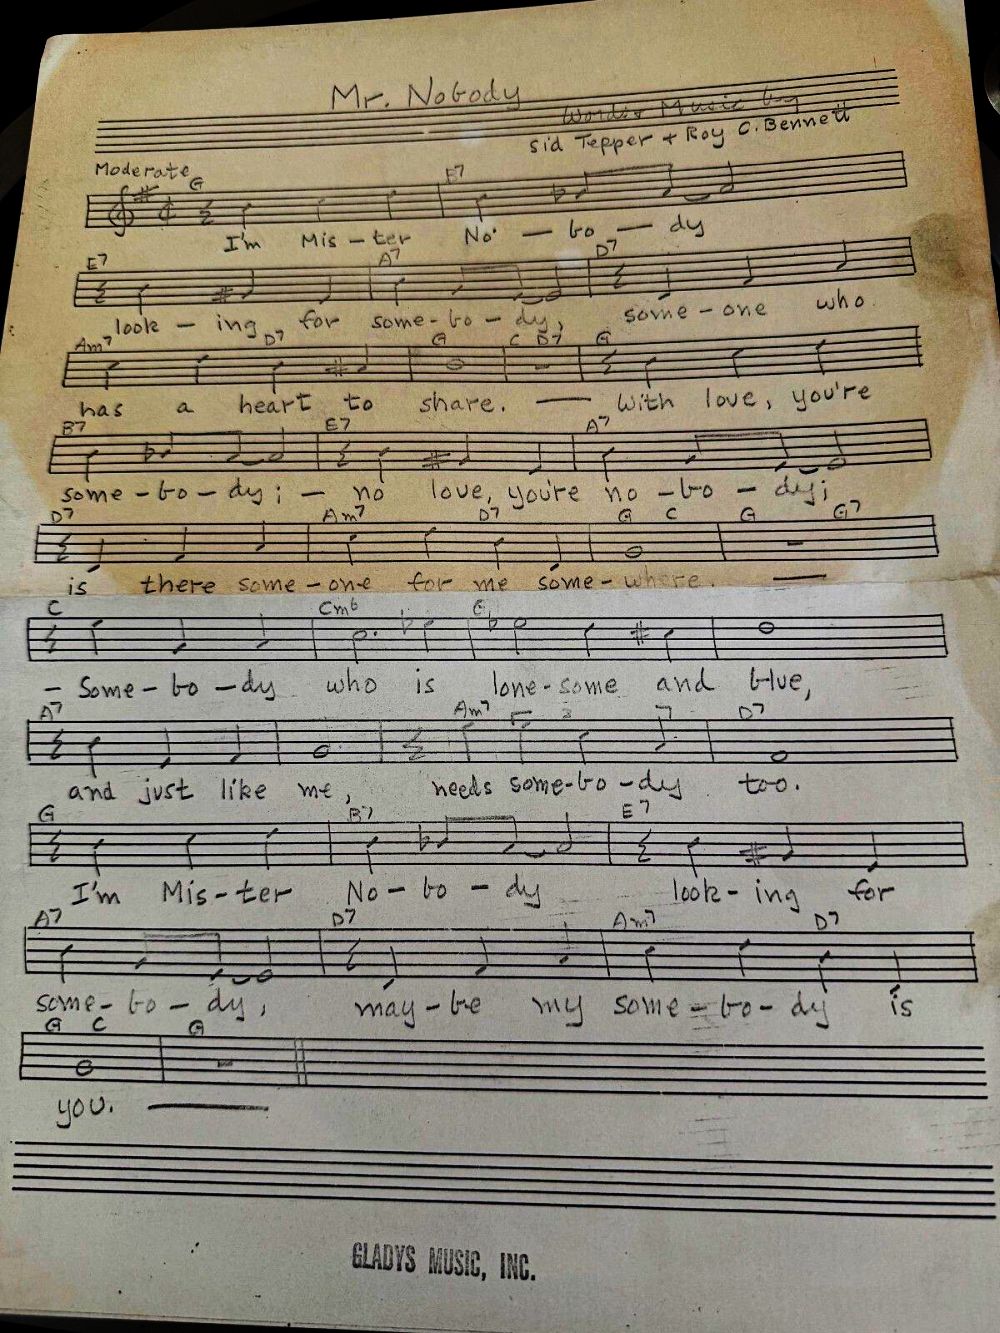 Mr. Nobody
Words & Music by
Sid Tepper + Roy C. Bennett
Moderate
G E7
I'm Mis - ter No - bo - dy
E7 A7 D7
look - ing for some - bo - dy, some - one who
Am7 D7 G C D7 G
has a heart to share. — with love, you're
B7 E7 A7
some - bo - dy; - no love, you're no - bo - dy;
D7 Am7 D7 G C G G7
is there some - one for me some - where. —
C Cm6 G
- Some - bo - dy who is lone - some and blue,
A7 Am7 3 D7
and just like me, needs some - bo - dy too.
G B7 E7
I'm Mis - ter No - bo - dy look - ing for
A7 D7 Am7 D7
some - bo - dy, may - be my some - bo - dy is
G C G
you. —
GLADYS MUSIC, INC.